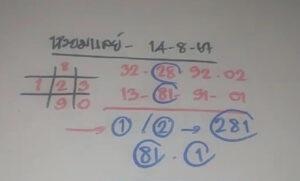 หวยมาเลย์- 14-8-67
8
32-28-92-02
1 2 3
13-81-91-01
9 0
① / ② → 281
81 . 1